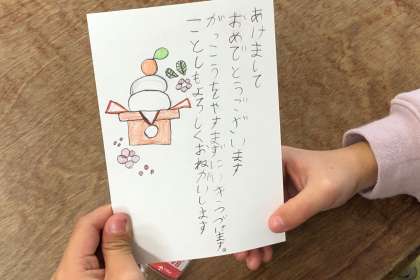 あけまして
おめでとうございます
がっこうをやすまずにいきつづけます。
ことしもよろしくおねがいします